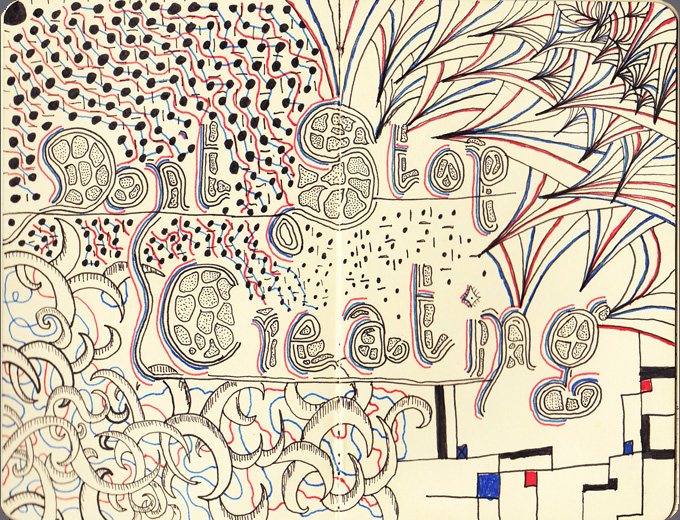 Dont Stop
Creating